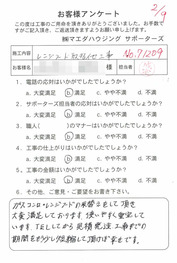 2/9
お客様アンケート
この度は工事のご用命を頂きありがとうございました。お手数で
すがご記入頂き、ご返送頂きますようお願い申し上げます。
㈱マエダハウジング サポーターズ
施工内容 レンジフード取替え工事 No.7/1209
お客様名 様 担当者
1. 電話の応対はいかがでしたでしょうか?
a. 大変満足 b. 満足 c. やや不満 d. 不満
2. サポーターズ担当者の応対はいかがでしたでしょうか?
a. 大変満足 b. 満足 c. やや不満 d. 不満
3. 職人( )のマナーはいかがでしたでしょうか?
a. 大変満足 b. 満足 c. やや不満 d. 不満
4. 工事の仕上がりはいかがでしたでしょうか?
a. 大変満足 b. 満足 c. やや不満 d. 不満
5. 工事の金額はいかがでしたでしょうか?
a. 大変満足 b. 満足 c. やや不満 d. 不満
6. その他、ご意見・ご要望をお書き下さい。
ガスコンロ・レンジフードの取替をして頂き
大変満足しております。使いやすく重宝して
います。TELしてから見積発注 工事までの
期間をもう少し短縮して頂けば幸せです。